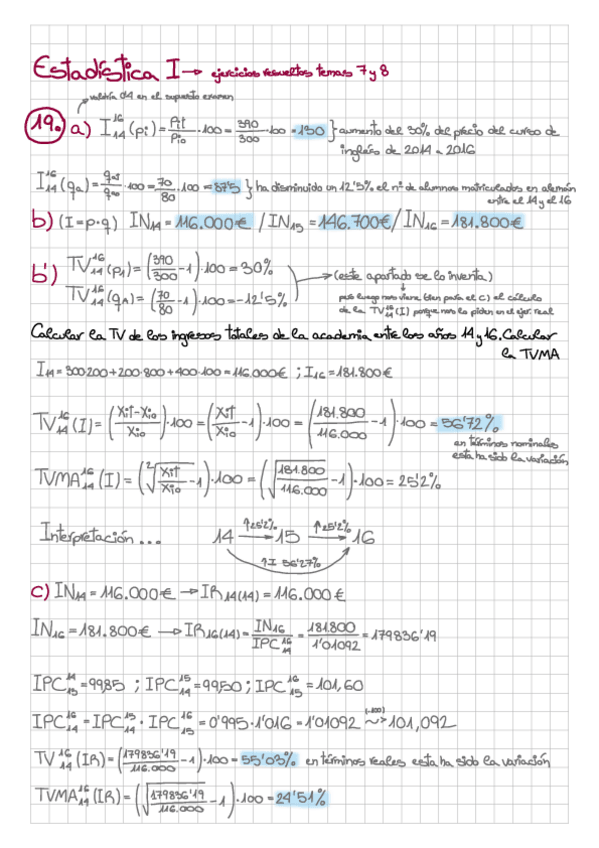 Estadística I → ejercicios resueltos temas 7 y 8
valdría 0'4 en el supuesto examen
19. a) I₁₄¹⁶(pi) = Pit/Pi0 · 100 = 390/300 · 100 = 130 } aumento del 30% del precio del curso de
inglés de 2014 a 2016
I₁₄¹⁶(qa) = /· 100 = 70/80 · 100 = 87'5 } ha disminuido un 12'5% el nº de alumnos matriculados en alemán
entre el 14 y el 16
b) (I=p·q) IN₁₄ = 116.000€ / IN₁₅ = 146.700€ / IN₁₆ = 181.800€
b') TV₁₄¹⁶(p₁) = (390/300 - 1) · 100 = 30%
TV₁₄¹⁶(qA) = (70/80 - 1) · 100 = -12'5%
→ (este apartado se lo inventa)
pero luego nos viene bien para el c) el cálculo
de la TV₁₄¹⁶(I) porque nos lo piden en el ejer. real
Calcular la TV de los ingresos totales de la academia entre los años 14 y 16. Calcular
la TVMA
I₁₄ = 300·200 + 200·800 + 400·100 = 116.000€ ; I₁₆ = 181.800€
TV₁₄¹⁶(I) = (Xit-Xi0/Xi0) · 100 = (Xit/Xi0 - 1) · 100 = (181.800/116.000 - 1) · 100 = 56'72%
en términos nominales
esta ha sido la variación
TVMA₁₄¹⁶(I) = (²√Xit/Xi0 - 1) · 100 = (√181.800/116.000 - 1) · 100 = 25'2%
Interpretación ... 14 →↑25'2% 15 →↑25'2% 16
↑I 56'27%
c) IN₁₄ = 116.000€ → IR₁₄(14) = 116.000€
IN₁₆ = 181.800€ → IR₁₆(14) = IN₁₆/IPC₁₄¹⁶ = 181.800/1'01092 = 179836'19
IPC₁₅¹⁴ = 99,85 ; IPC₁₄¹⁵ = 99,50 ; IPC₁₅¹⁶ = 101,60
IPC₁₄¹⁶ = IPC₁₄¹⁵ · IPC₁₅¹⁶ = 0'995 · 1'016 = 1'01092 (·100) ~> 101,092
TV₁₄¹⁶(IR) = (179836'19/116.000 - 1) · 100 = 55'03% en términos reales esta ha sido la variación
TVMA₁₄¹⁶(IR) = (√179836'19/116.000 - 1) · 100 = 24'51%